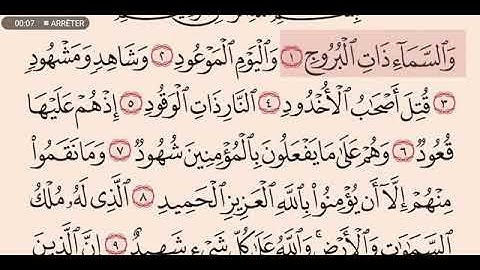 00:07 ■ ARRÊTER
وَٱلسَّمَآءِ ذَاتِ ٱلْبُرُوجِ ١ وَٱلْيَوْمِ ٱلْمَوْعُودِ ٢ وَشَاهِدٍ وَمَشْهُودٍ
٣ قُتِلَ أَصْحَٰبُ ٱلْأُخْدُودِ ٤ ٱلنَّارِ ذَاتِ ٱلْوَقُودِ ٥ إِذْ هُمْ عَلَيْهَا
قُعُودٌ ٦ وَهُمْ عَلَىٰ مَا يَفْعَلُونَ بِٱلْمُؤْمِنِينَ شُهُودٌ ٧ وَمَا نَقَمُوا۟
مِنْهُمْ إِلَّآ أَن يُؤْمِنُوا۟ بِٱللَّهِ ٱلْعَزِيزِ ٱلْحَمِيدِ ٨ ٱلَّذِى لَهُۥ مُلْكُ
ٱلسَّمَٰوَٰتِ وَٱلْأَرْضِ ۚ وَٱللَّهُ عَلَىٰ كُلِّ شَىْءٍ شَهِيدٌ ٩ إِنَّ ٱلَّذِينَ